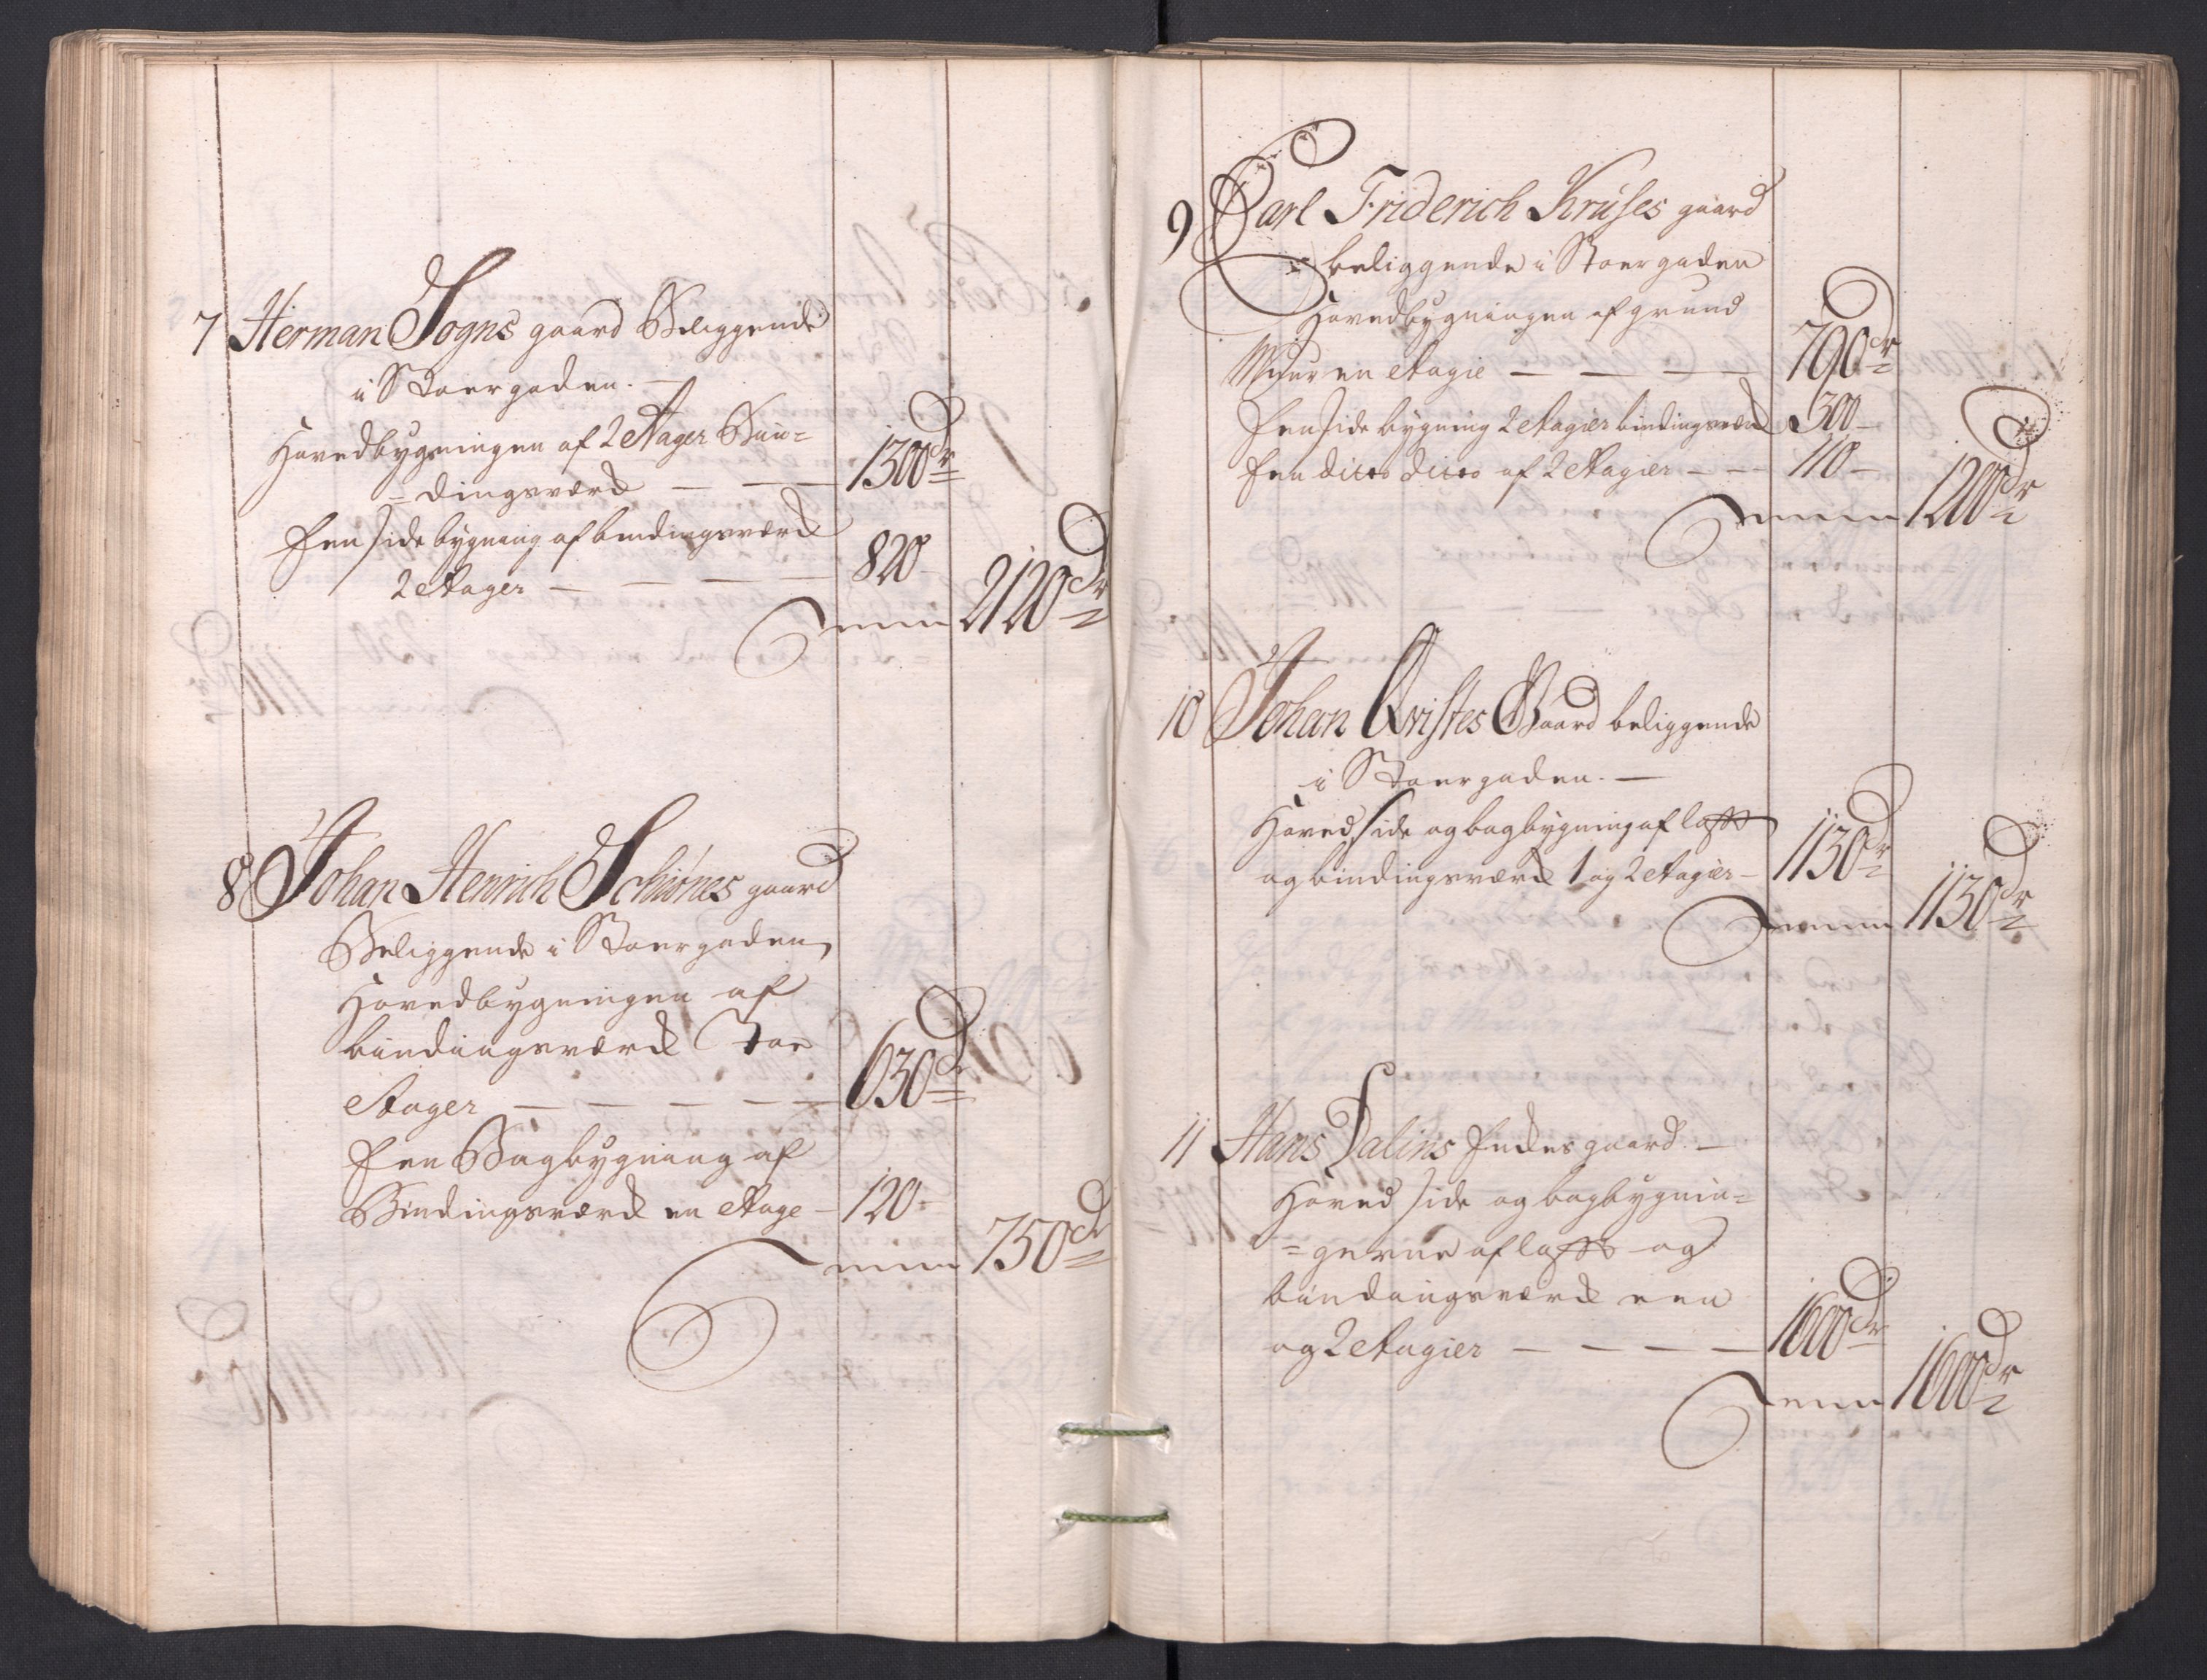 7 Herman Sogns gaard Beliggende
i Stoergaden. —
Hovedbygningen af 2 Etager Bin=
=dingsværck — — — 1300 dr
Een side bygning af bindingsværck
2 Etager — — — — 820 -
Summa 2120 dr
8 Johan Henrich Schiönes gaard
Beliggende i Stoergaden,
Hovedbygningen af
bindingsværck Toe
Etager — — — — — 630 dr
Een Bagbygning af
Bindingsværck en Etage — 120 -
Summa 750 dr
9 Carl Friderich Kruses gaard
beliggende i Stoergaden
Hovedbygningen af grund
Muur en Etagie — — — — 790 dr
Een side bygning 2 Etagier bindingsværck 300 —
Een dicto dicto af 2 Etagier — — 110 —
Summa 1200 dr
10 Johan Qvistes Gaard beliggende
i Stoergaden. —
Hoved, side og bagbygning af lafft
og bindingsværck 1 og 2 Etagier — 1130 dr
Summa 1130 dr
11 Hans Dalins Enckes gaard. —
Hoved side og bagbygnin=
=gerne af lafft og
bindingsværck een
og 2 Etagier — — — — 1600 dr
Summa 1600 dr